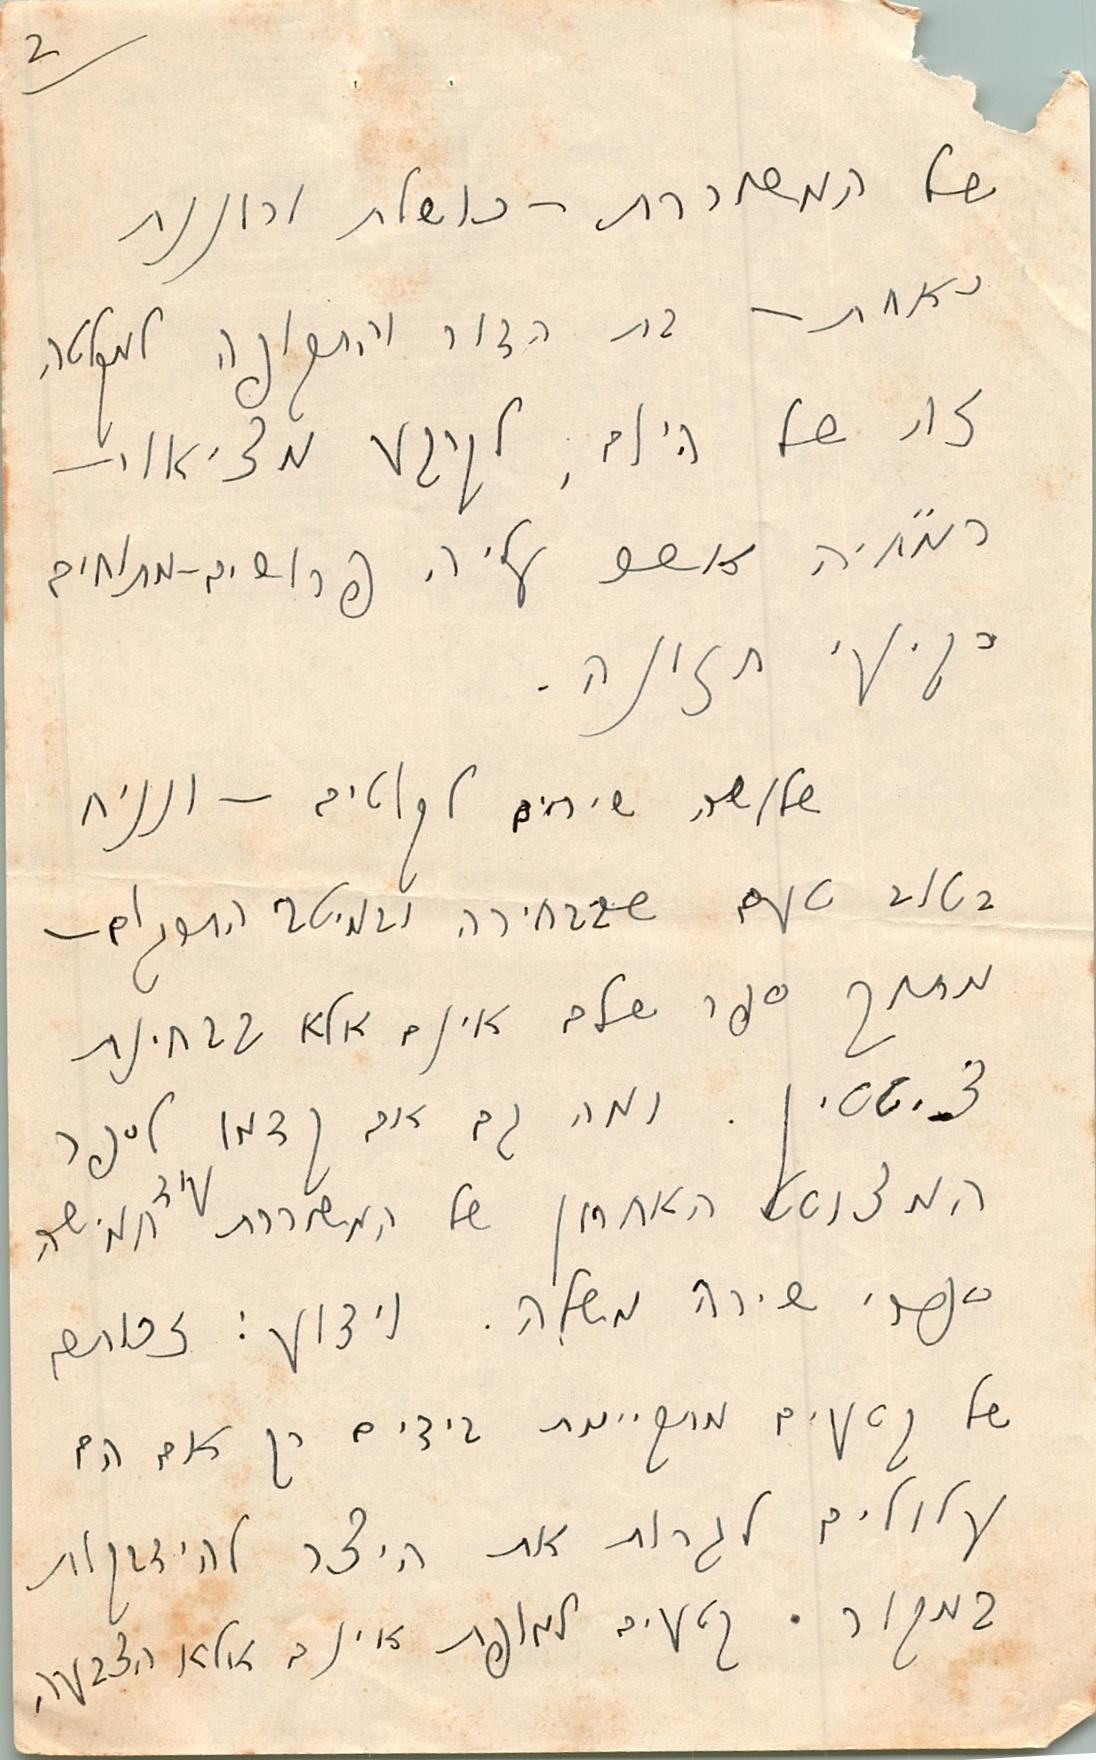 2
של המשוררת – כושלת ורוננת
כאחת – בת הדור והתקופה למקלטה
זו של הילם, לקרקע מציאות –
דמיה אשש עליה פרושים-מתוחים
כקיעי תזונה.
שלושה שירים לקוטים – ונניח
בטוב טעם שבבחירה ובמיטב התרגום –
מתוך ספר שלם אינם אלא בבחינת
ציטטין. ומה גם אם קדמו לספר
המצוטט האחרון של המשוררת עוד חמישה
ספרי שירה משלה. וידוע: זכותם
של קטעים מתקיימת בידים רק אם הם
עלולים לגרות את היצר להידבקות
במקור. קטעים למופת אינם אלא הצבעה